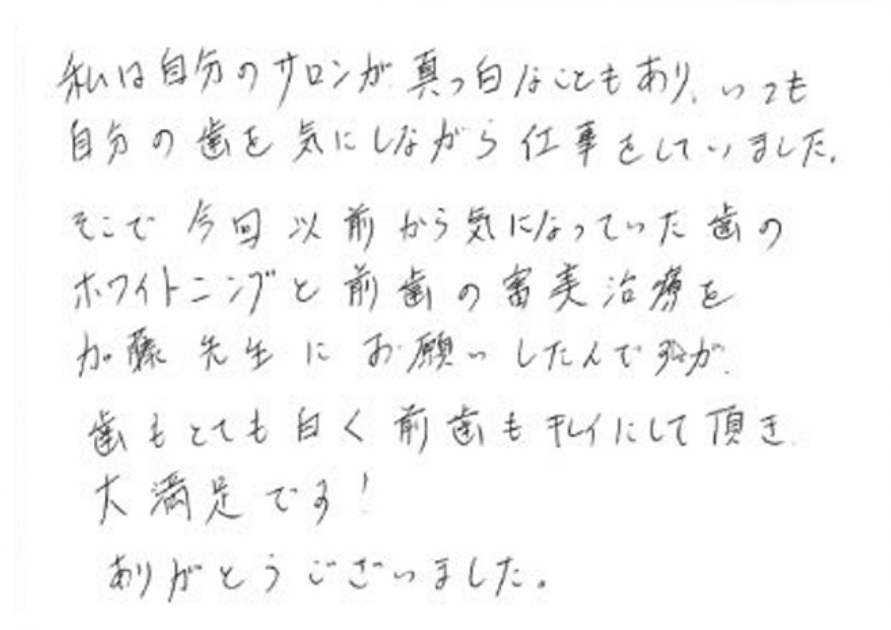 私は自分のサロンが真っ白なこともあり、いつも
自分の歯を気にしながら仕事をしていました。
そこで今回以前から気になっていた歯の
ホワイトニングと前歯の審美治療を
加藤先生にお願いしたんですが、
歯もとても白く前歯もキレイにして頂き、
大満足です!
ありがとうございました。